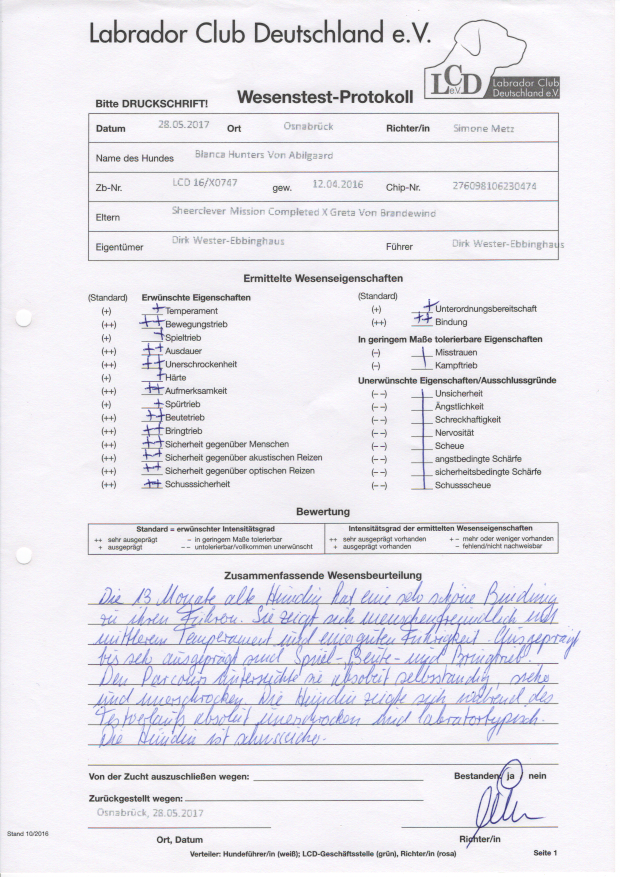 Labrador Club Deutschland e.V.
LCD e.V. Labrador Club Deutschland e.V.
Bitte DRUCKSCHRIFT! Wesenstest-Protokoll
Datum 28.05.2017 Ort Osnabrück Richter/in Simone Metz
Name des Hundes Blanca Hunters Von Abilgaard
Zb-Nr. LCD 16/X0747 gew. 12.04.2016 Chip-Nr. 276098106230474
Eltern Sheerclever Mission Completed X Greta Von Brandewind
Eigentümer Dirk Wester-Ebbinghaus Führer Dirk Wester-Ebbinghaus
Ermittelte Wesenseigenschaften
(Standard) Erwünschte Eigenschaften
(+) + Temperament
(++) ++ Bewegungstrieb
(+) + Spieltrieb
(++) ++ Ausdauer
(++) ++ Unerschrockenheit
(+) + Härte
(++) ++ Aufmerksamkeit
(+) + Spürtrieb
(++) ++ Beutetrieb
(++) ++ Bringtrieb
(++) ++ Sicherheit gegenüber Menschen
(++) ++ Sicherheit gegenüber akustischen Reizen
(++) ++ Sicherheit gegenüber optischen Reizen
(++) ++ Schusssicherheit
(Standard)
(+) + Unterordnungsbereitschaft
(++) ++ Bindung
In geringem Maße tolerierbare Eigenschaften
(–) Misstrauen
(–) Kampftrieb
Unerwünschte Eigenschaften/Ausschlussgründe
(– –) Unsicherheit
(– –) Ängstlichkeit
(– –) Schreckhaftigkeit
(– –) Nervosität
(– –) Scheue
(– –) angstbedingte Schärfe
(– –) sicherheitsbedingte Schärfe
(– –) Schussscheue
Bewertung
Standard = erwünschter Intensitätsgrad
++ sehr ausgeprägt – in geringem Maße tolerierbar
+ ausgeprägt – – untolerierbar/vollkommen unerwünscht
Intensitätsgrad der ermittelten Wesenseigenschaften
++ sehr ausgeprägt vorhanden + – mehr oder weniger vorhanden
+ ausgeprägt vorhanden – fehlend/nicht nachweisbar
Zusammenfassende Wesensbeurteilung
Die 13 Monate alte Hündin hat eine sehr schöne Bindung
zu ihrem Führer. Sie zeigt sich menschenfreundlich mit
mittlerem Temperament und einer guten Führigkeit. Ausgeprägt
bis sehr ausgeprägt sind Spiel-, Beute- und Bringtrieb.
Den Parcours untersuchte sie absolut selbständig, sicher
und unerschrocken. Die Hündin zeigte sich während des
Testverlaufs absolut unerschrocken und labradortypisch.
Die Hündin ist schusssicher.
Von der Zucht auszuschließen wegen:
Bestanden: ja nein
Zurückgestellt wegen:
Osnabrück, 28.05.2017
Ort, Datum Richter/in
Stand 10/2016
Verteiler: Hundeführer/in (weiß); LCD-Geschäftsstelle (grün), Richter/in (rosa) Seite 1